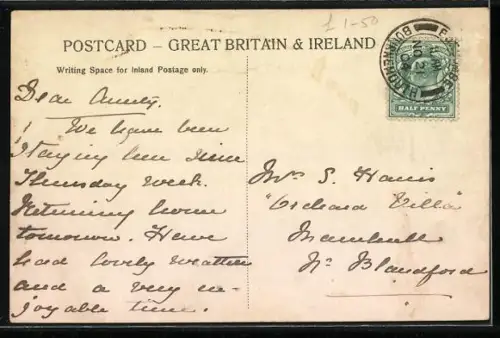 £ 1-50
POSTCARD – GREAT BRITAIN & IRELAND
Writing Space for Inland Postage only.
BOURNEMOUTH
NO 2
HALF PENNY
Dear Aunty.
We have been
staying here since
Thursday week.
Returning home
tomorrow. Have
had lovely weather
and a very en-
joyable time.
Mrs S. Harris
"Orchard Villa
Marnhull
Nr Blandford